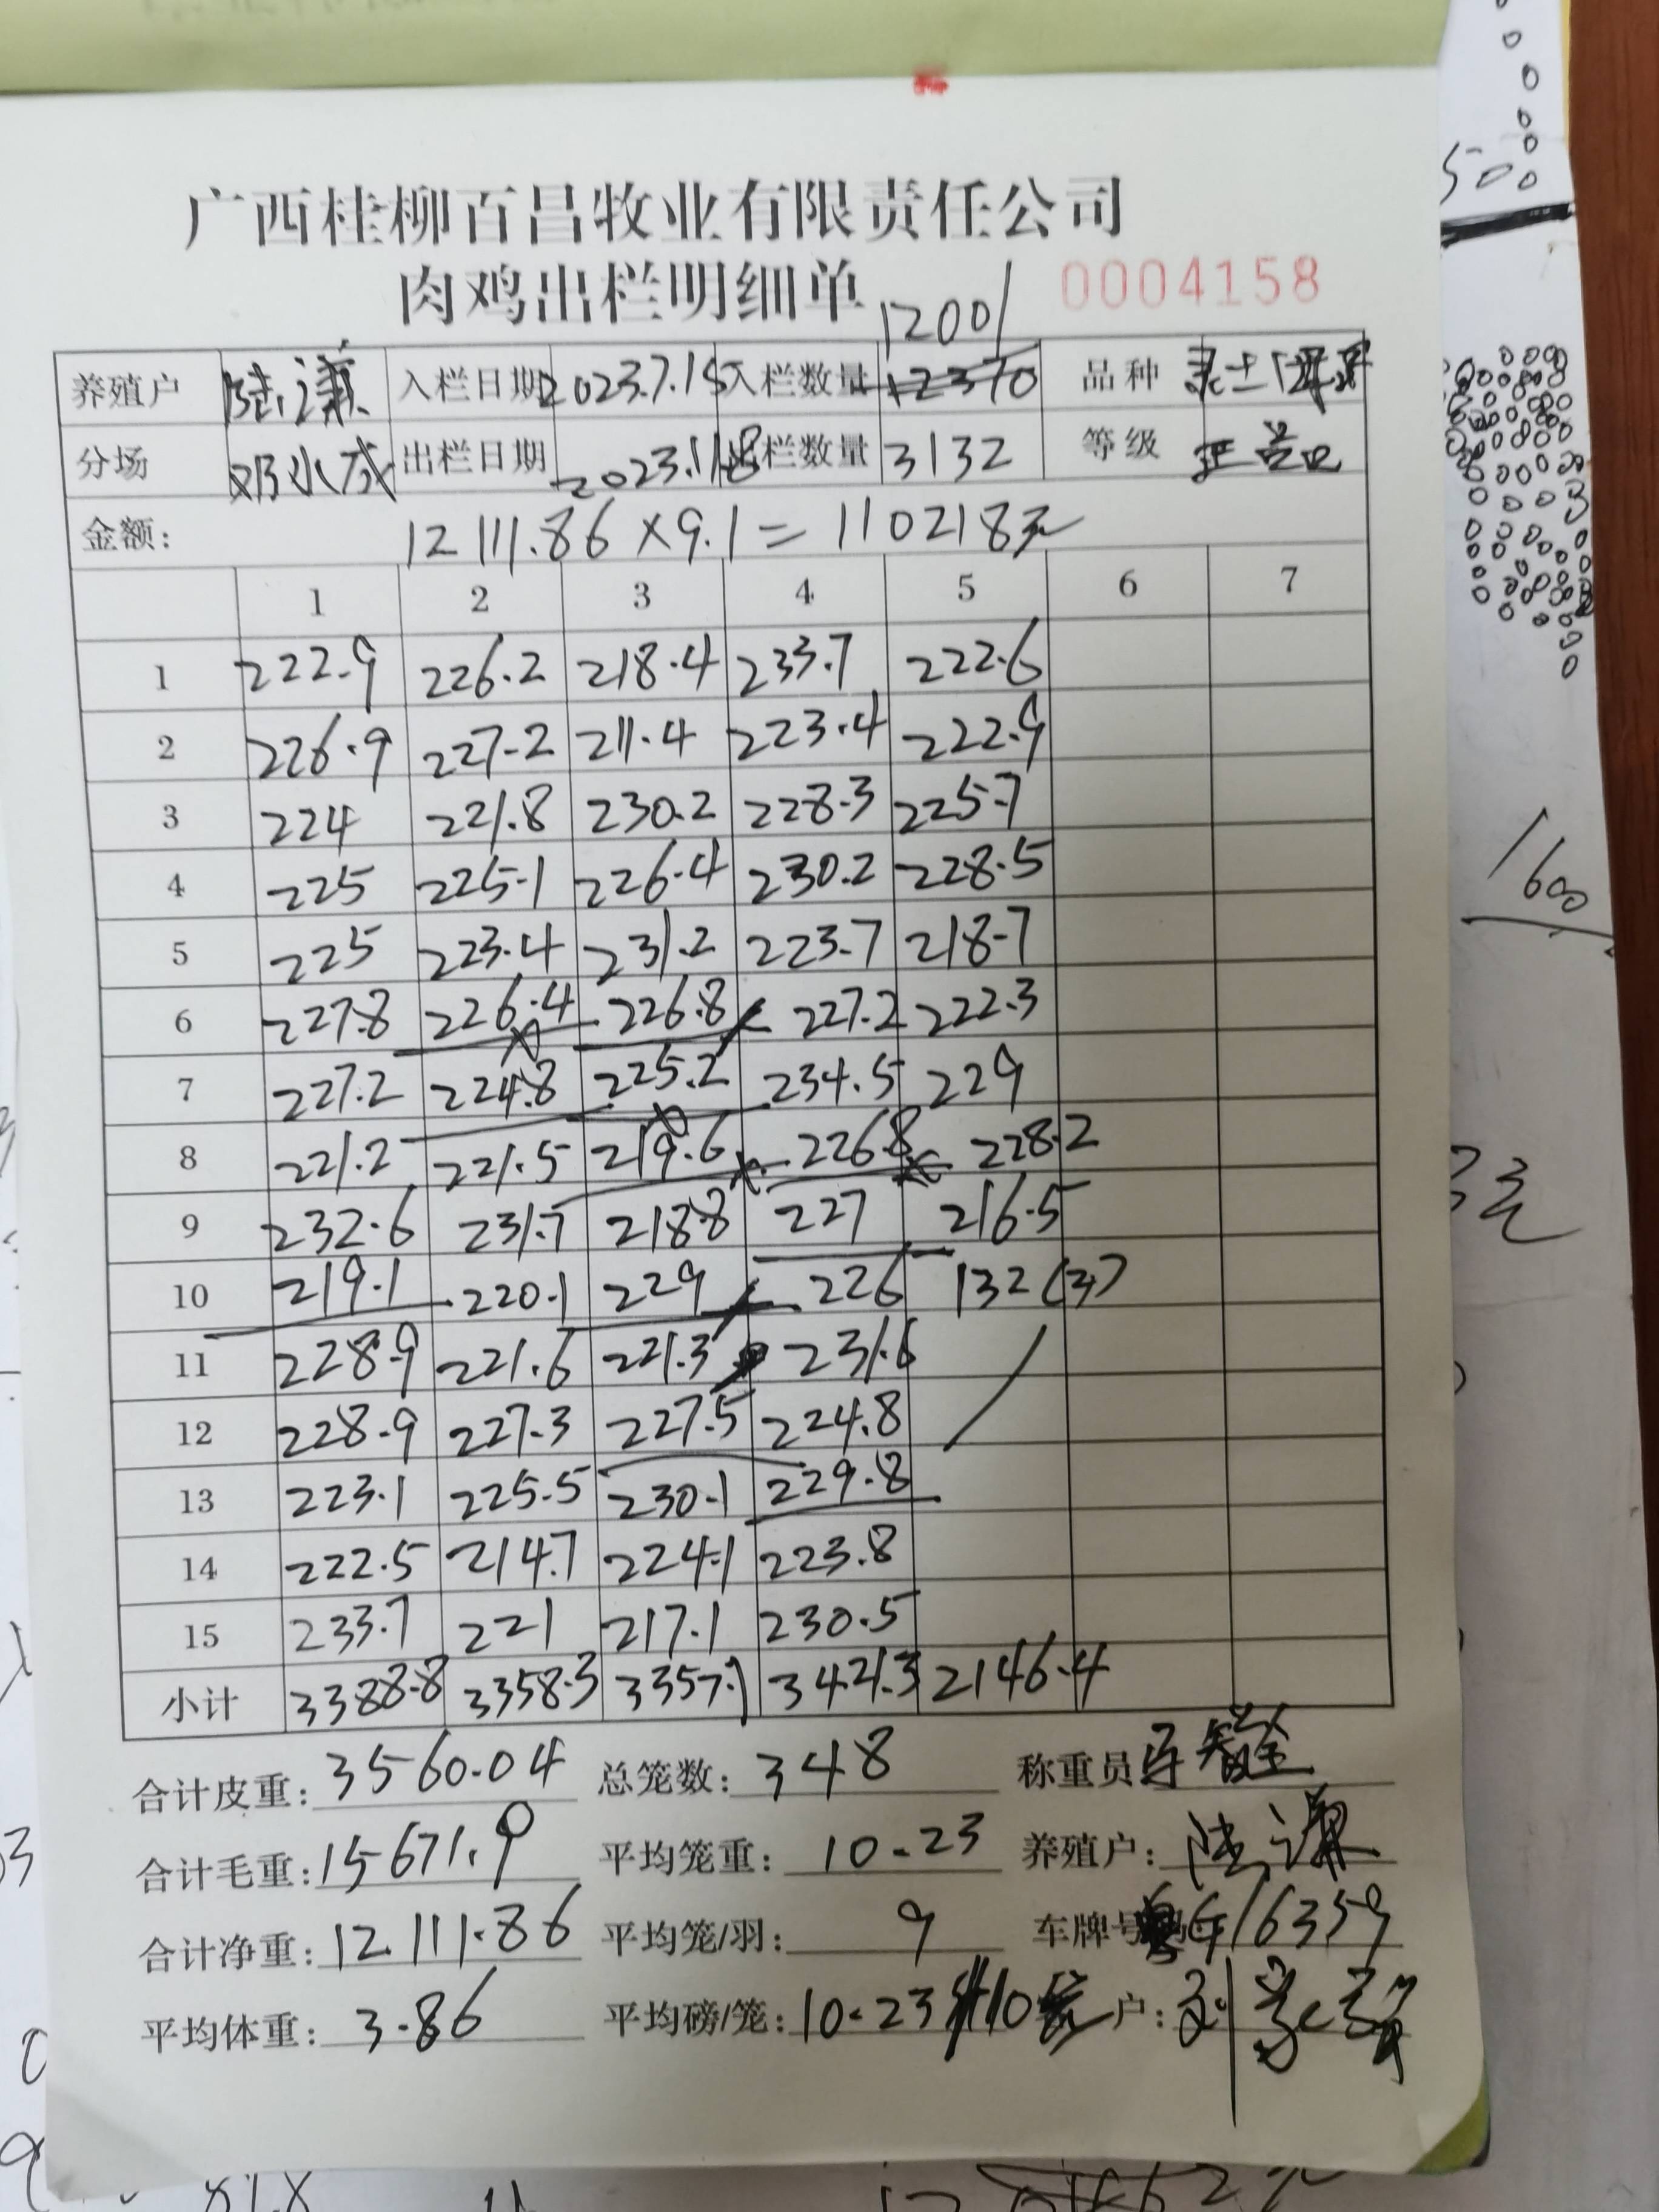 广西桂柳百昌牧业有限责任公司
肉鸡出栏明细单 0004158
12001
养殖户 陆谦 入栏日期 2023.7.15 入栏数量 12370 品种
分场 邓小成 出栏日期 2023.11.8 出栏数量 3132 等级 正品
金额: 12111.86×9.1=110218元
1 2 3 4 5 6 7
1 222.9 226.2 218.4 233.7 222.6
2 226.9 227.2 211.4 223.4 222.9
3 224 221.8 230.2 228.3 225.7
4 225 225.1 226.4 230.2 228.5
5 225 223.4 231.2 223.7 218.7
6 227.8 226.4 226.8 227.2 222.3
7 227.2 224.8 225.2 234.5 229
8 221.2 221.5 219.6 226.8 228.2
9 232.6 231.7 218.8 227 216.5
10 219.1 220.1 229 226 132(3)
11 228.9 221.6 221.3 231.6
12 228.9 227.3 227.5 224.8
13 223.1 225.5 230.1 229.8
14 222.5 214.7 224.1 223.8
15 233.7 221 217.1 230.5
小计 3388.8 3358.3 3357.1 3421.3 2146.4
合计皮重: 3560.04 总笼数: 348 称重员
合计毛重: 15671.9 平均笼重: 10.23 养殖户: 陆谦
合计净重: 12111.86 平均笼/羽: 9 车牌号 16359
平均体重: 3.86 平均磅/笼: 10.23 户:
500
1600